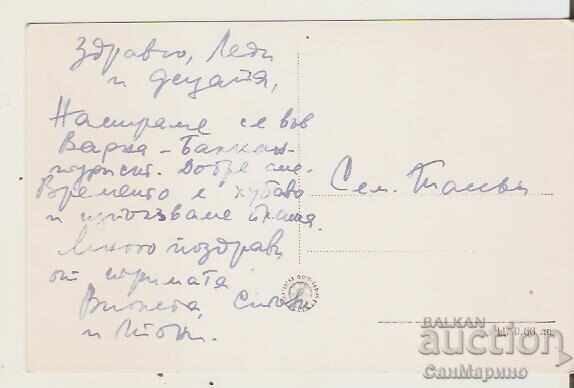 Здравко, Леди
и децата,
Намираме се във
Варна - Балкан-
турист. Добре сме.
Времето е хубаво
и използваме плажа.
Много поздрави
от тримата
Виолета,
и
Сем. Ташеви
Ц. 0.06 лв.
BALKAN
auction
СанМарино